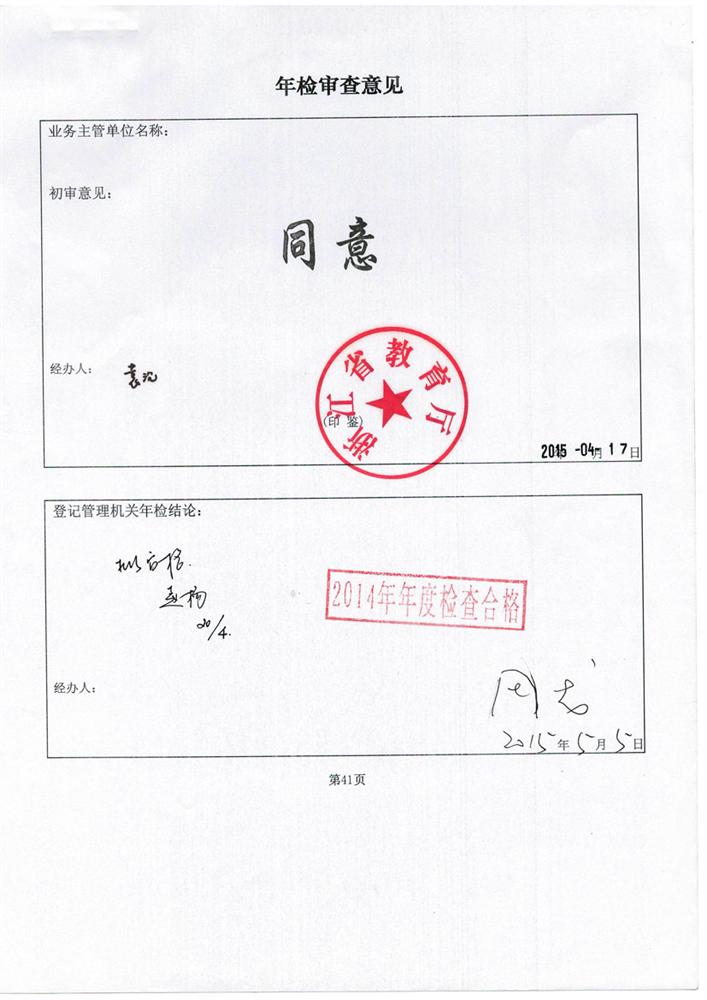 年检审查意见
业务主管单位名称：
初审意见：
同意
经办人：
浙江省教育厅
(印 鉴)
2015 -04- 17日
登记管理机关年检结论：
拟合格.
20/4.
2014年年度检查合格
经办人：
2015年5月5日
第41页